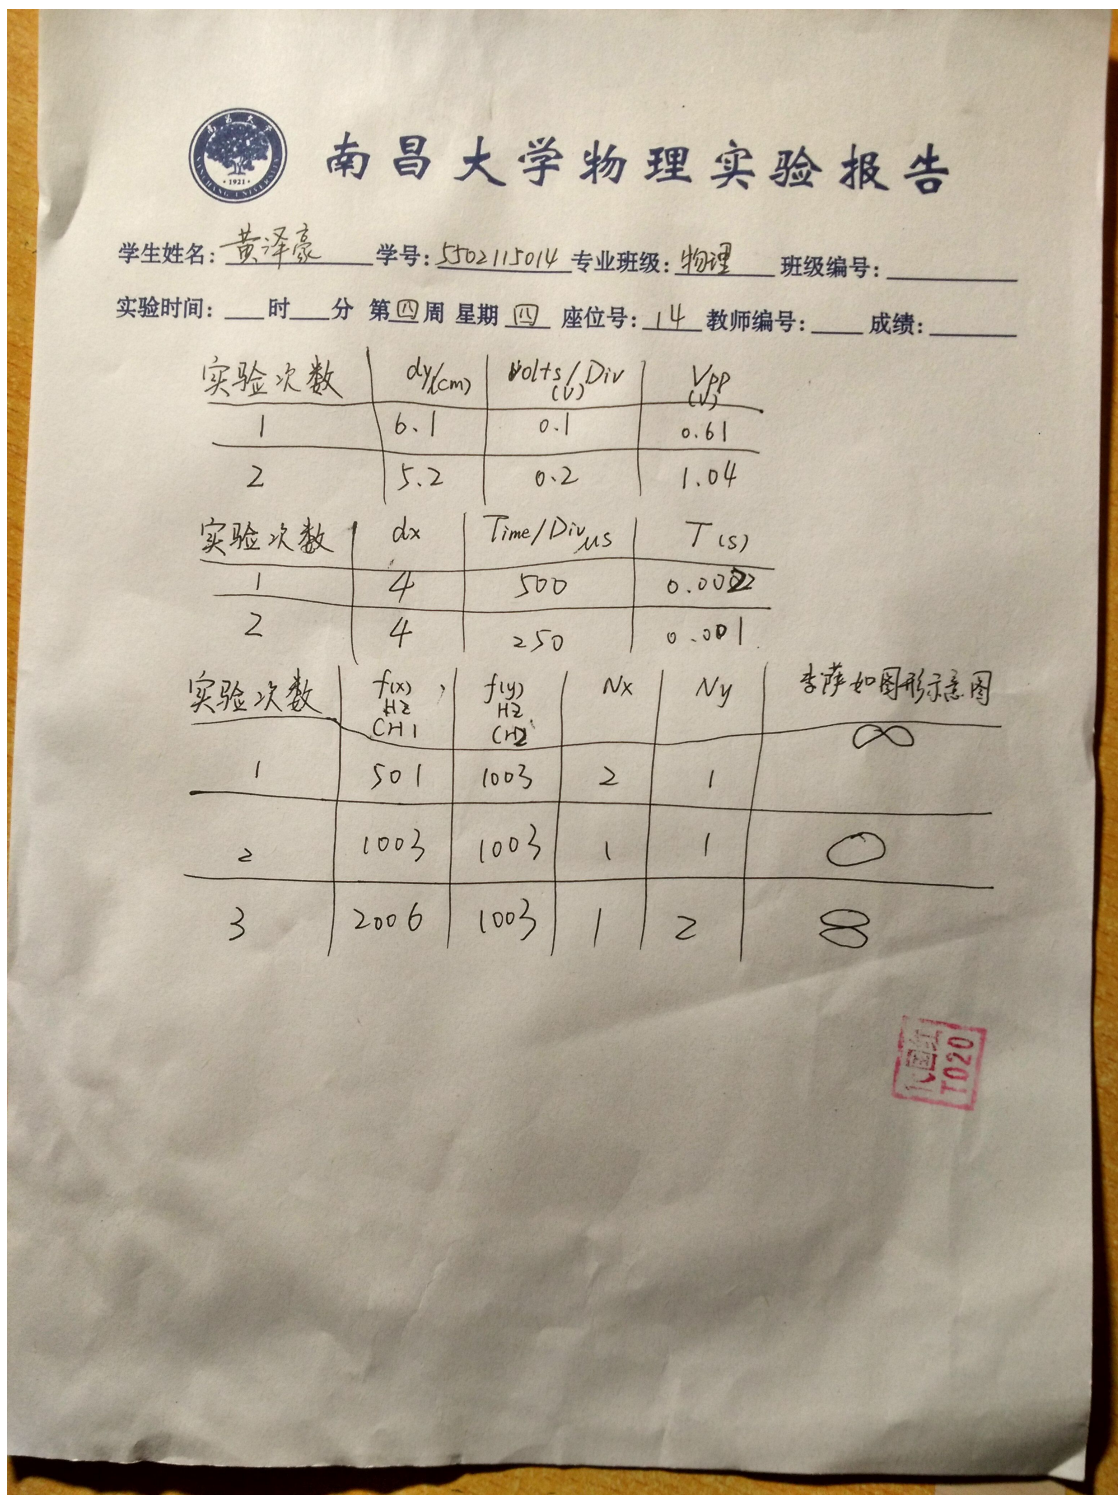 南昌大学物理实验报告
学生姓名: 黄泽豪 学号: 5502115014 专业班级: 物理 班级编号:
实验时间: 时 分 第四周 星期四 座位号: 14 教师编号: 成绩:
实验次数 dy/(cm) Volts/Div (V) Vpp (V)
1 6.1 0.1 0.61
2 5.2 0.2 1.04
实验次数 dx Time/Div μs T(s)
1 4 500 0.002
2 4 250 0.001
实验次数 f(x) HZ CH1 f(y) HZ CH2 Nx Ny 李萨如图形示意图
1 501 1003 2 1
2 1003 1003 1 1
3 2006 1003 1 2
T020